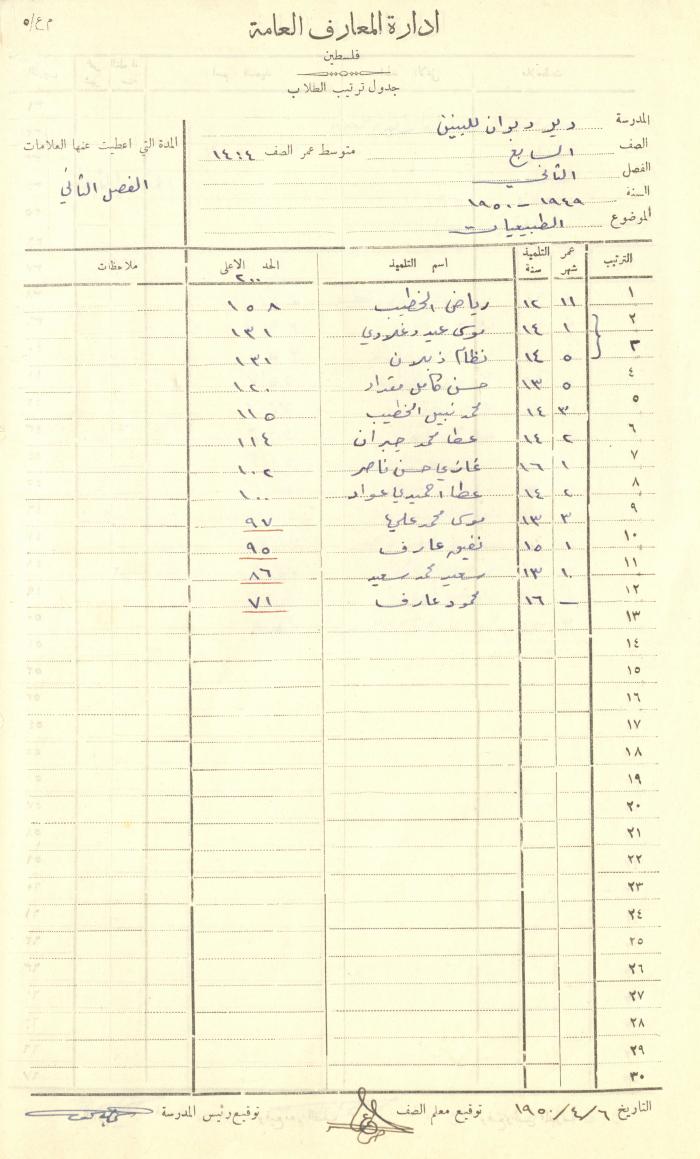 م ع/٥
ادارة المعارف العامة
فلسطين
جدول ترتيب الطلاب
المدرسة دير ديوان للبنين
الصف السابع متوسط عمر الصف ١٤:٤
الفصل الثاني
السنة ١٩٤٩ – ١٩٥٠
الموضوع الطبيعيات
المدة التي اعطيت عنها العلامات
الفصل الثاني
الترتيب عمر التلميذ شهر سنة اسم التلميذ الحد الاعلى ٢٠٠ ملاحظات
١ ١١ ١٢ رياض الخطيب ١٥٨
٢ ١ ١٤ موسى عيد دغلاوي ١٣١
٣ ٥ ١٤ نظام ذبلان ١٣١
٤ ٥ ١٣ حسن كامل مقداد ١٢٠
٥ ٣ ١٤ محمد نبيل الخطيب ١١٥
٦ ٢ ١٤ عطا محمد جبران ١١٤
٧ ١ ١٦ غازي حسن ناصر ١٠٢
٨ ٢ ١٤ عطا احميدي عواد ١٠٠
٩ ٣ ١٣ موسى محمد علي ٩٧
١٠ ١ ١٥ نفيق عارف ٩٥
١١ ١٠ ١٣ سعيد محمد سعيد ٨٦
١٢ — ١٦ محمود عارف ٧١
١٣
١٤
١٥
١٦
١٧
١٨
١٩
٢٠
٢١
٢٢
٢٣
٢٤
٢٥
٢٦
٢٧
٢٨
٢٩
٣٠
التاريخ ٦/٤/١٩٥٠ توقيع معلم الصف توقيع رئيس المدرسة